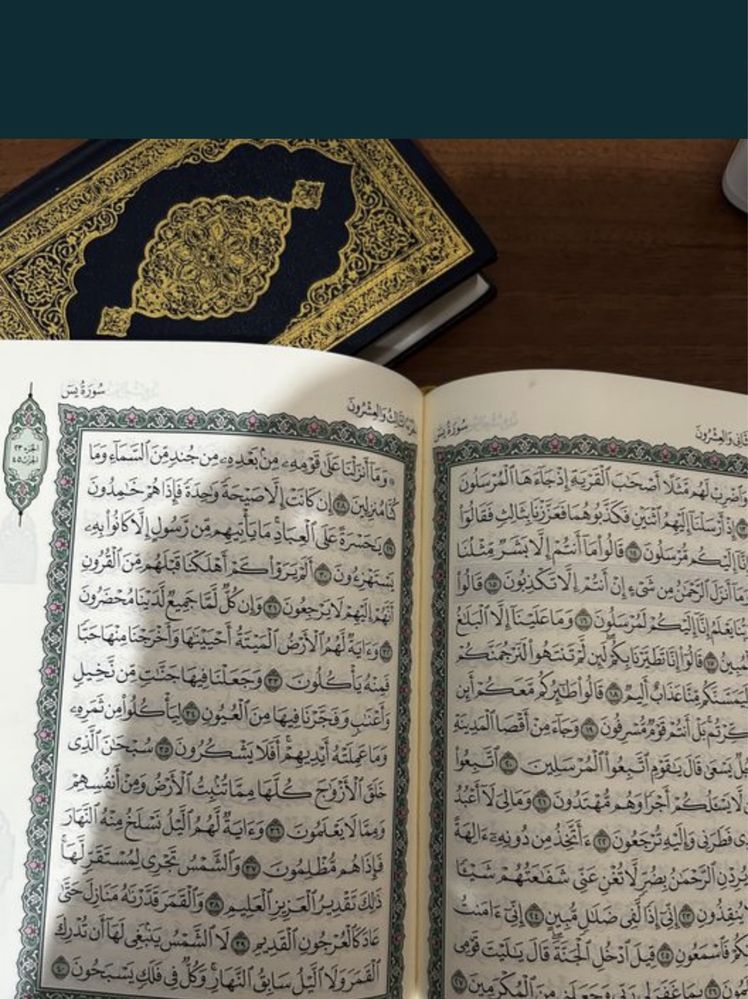 وَالعِشْرُونَ سُورَةُ يسٓ
وَٱضْرِبْ لَهُم مَّثَلًا أَصْحَٰبَ ٱلْقَرْيَةِ إِذْ جَآءَهَا ٱلْمُرْسَلُونَ
إِذْ أَرْسَلْنَآ إِلَيْهِمُ ٱثْنَيْنِ فَكَذَّبُوهُمَا فَعَزَّزْنَا بِثَالِثٍ فَقَالُوٓا۟
إِنَّآ إِلَيْكُم مُّرْسَلُونَ ١٤ قَالُوا۟ مَآ أَنتُمْ إِلَّا بَشَرٌ مِّثْلُنَا
وَمَآ أَنزَلَ ٱلرَّحْمَٰنُ مِن شَىْءٍ إِنْ أَنتُمْ إِلَّا تَكْذِبُونَ ١٥ قَالُوا۟
يَعْلَمُ إِنَّآ إِلَيْكُمْ لَمُرْسَلُونَ ١٦ وَمَا عَلَيْنَآ إِلَّا ٱلْبَلَٰغُ
ٱلْمُبِينُ ١٧ قَالُوٓا۟ إِنَّا تَطَيَّرْنَا بِكُمْ لَئِن لَّمْ تَنتَهُوا۟ لَنَرْجُمَنَّكُمْ
وَلَيَمَسَّنَّكُم مِّنَّا عَذَابٌ أَلِيمٌ ١٨ قَالُوا۟ طَٰٓئِرُكُم مَّعَكُمْ أَئِن
ذُكِّرْتُم بَلْ أَنتُمْ قَوْمٌ مُّسْرِفُونَ ١٩ وَجَآءَ مِنْ أَقْصَا ٱلْمَدِينَةِ
رَجُلٌ يَسْعَىٰ قَالَ يَٰقَوْمِ ٱتَّبِعُوا۟ ٱلْمُرْسَلِينَ ٢٠ ٱتَّبِعُوا۟
لَّا يَسْـَٔلُكُمْ أَجْرًا وَهُم مُّهْتَدُونَ ٢١ وَمَا لِىَ لَآ أَعْبُدُ
ٱلَّذِى فَطَرَنِى وَإِلَيْهِ تُرْجَعُونَ ٢٢ ءَأَتَّخِذُ مِن دُونِهِۦٓ ءَالِهَةً
يُرِدْنِ ٱلرَّحْمَٰنُ بِضُرٍّ لَّا تُغْنِ عَنِّى شَفَٰعَتُهُمْ شَيْـًٔا
يُنقِذُونِ ٢٣ إِنِّىٓ إِذًا لَّفِى ضَلَٰلٍ مُّبِينٍ ٢٤ إِنِّىٓ ءَامَنتُ
بِرَبِّكُمْ فَٱسْمَعُونِ ٢٥ قِيلَ ٱدْخُلِ ٱلْجَنَّةَ قَالَ يَٰلَيْتَ قَوْمِى
يَعْلَمُونَ ٢٦ بِمَا غَفَرَ لِى رَبِّى وَجَعَلَنِى مِنَ ٱلْمُكْرَمِينَ ٢٧
الجُزْءُ الثَّالِثُ وَالعِشْرُونَ سُورَةُ يسٓ
الجزء ٢٣
الحزب ٤٥
۞ وَمَآ أَنزَلْنَا عَلَىٰ قَوْمِهِۦ مِنۢ بَعْدِهِۦ مِن جُندٍ مِّنَ ٱلسَّمَآءِ وَمَا
كُنَّا مُنزِلِينَ ٢٨ إِن كَانَتْ إِلَّا صَيْحَةً وَٰحِدَةً فَإِذَا هُمْ خَٰمِدُونَ
٢٩ يَٰحَسْرَةً عَلَى ٱلْعِبَادِ مَا يَأْتِيهِم مِّن رَّسُولٍ إِلَّا كَانُوا۟ بِهِۦ
يَسْتَهْزِءُونَ ٣٠ أَلَمْ يَرَوْا۟ كَمْ أَهْلَكْنَا قَبْلَهُم مِّنَ ٱلْقُرُونِ
أَنَّهُمْ إِلَيْهِمْ لَا يَرْجِعُونَ ٣١ وَإِن كُلٌّ لَّمَّا جَمِيعٌ لَّدَيْنَا مُحْضَرُونَ
٣٢ وَءَايَةٌ لَّهُمُ ٱلْأَرْضُ ٱلْمَيْتَةُ أَحْيَيْنَٰهَا وَأَخْرَجْنَا مِنْهَا حَبًّا
فَمِنْهُ يَأْكُلُونَ ٣٣ وَجَعَلْنَا فِيهَا جَنَّٰتٍ مِّن نَّخِيلٍ
وَأَعْنَٰبٍ وَفَجَّرْنَا فِيهَا مِنَ ٱلْعُيُونِ ٣٤ لِيَأْكُلُوا۟ مِن ثَمَرِهِۦ
وَمَا عَمِلَتْهُ أَيْدِيهِمْ أَفَلَا يَشْكُرُونَ ٣٥ سُبْحَٰنَ ٱلَّذِى
خَلَقَ ٱلْأَزْوَٰجَ كُلَّهَا مِمَّا تُنۢبِتُ ٱلْأَرْضُ وَمِنْ أَنفُسِهِمْ
وَمِمَّا لَا يَعْلَمُونَ ٣٦ وَءَايَةٌ لَّهُمُ ٱلَّيْلُ نَسْلَخُ مِنْهُ ٱلنَّهَارَ
فَإِذَا هُم مُّظْلِمُونَ ٣٧ وَٱلشَّمْسُ تَجْرِى لِمُسْتَقَرٍّ لَّهَا
ذَٰلِكَ تَقْدِيرُ ٱلْعَزِيزِ ٱلْعَلِيمِ ٣٨ وَٱلْقَمَرَ قَدَّرْنَٰهُ مَنَازِلَ حَتَّىٰ
عَادَ كَٱلْعُرْجُونِ ٱلْقَدِيمِ ٣٩ لَا ٱلشَّمْسُ يَنۢبَغِى لَهَآ أَن تُدْرِكَ
ٱلْقَمَرَ وَلَا ٱلَّيْلُ سَابِقُ ٱلنَّهَارِ وَكُلٌّ فِى فَلَكٍ يَسْبَحُونَ ٤٠